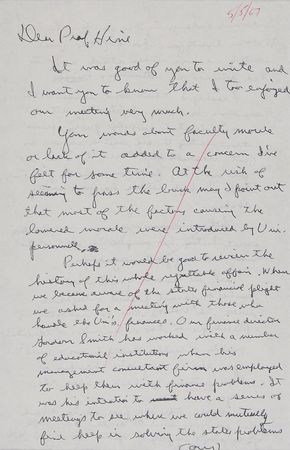 5/5/67
Dear Prof Hine
It was good of you to write and
I want you to know that I too enjoyed
our meeting very much.
Your words about faculty morale
or lack of it added to a concern I've
felt for some time. At the risk of
seeming to pass the buck may I point out
that most of the factors causing the
lowered morale were introduced by Uni.
personnel.
Perhaps it would be good to review the
history of this whole regrettable affair. When
we became aware of the states financial plight
we asked for a meeting with those who
handle the Uni's. finances. Our finance director
Gordon Smith has worked with a number
of educational institutions when his
management consultant firm was employed
to help them with finance problems. It
was his intention to have a series of
meetings to see where we could mutually
find help in solving the states problems
(over)